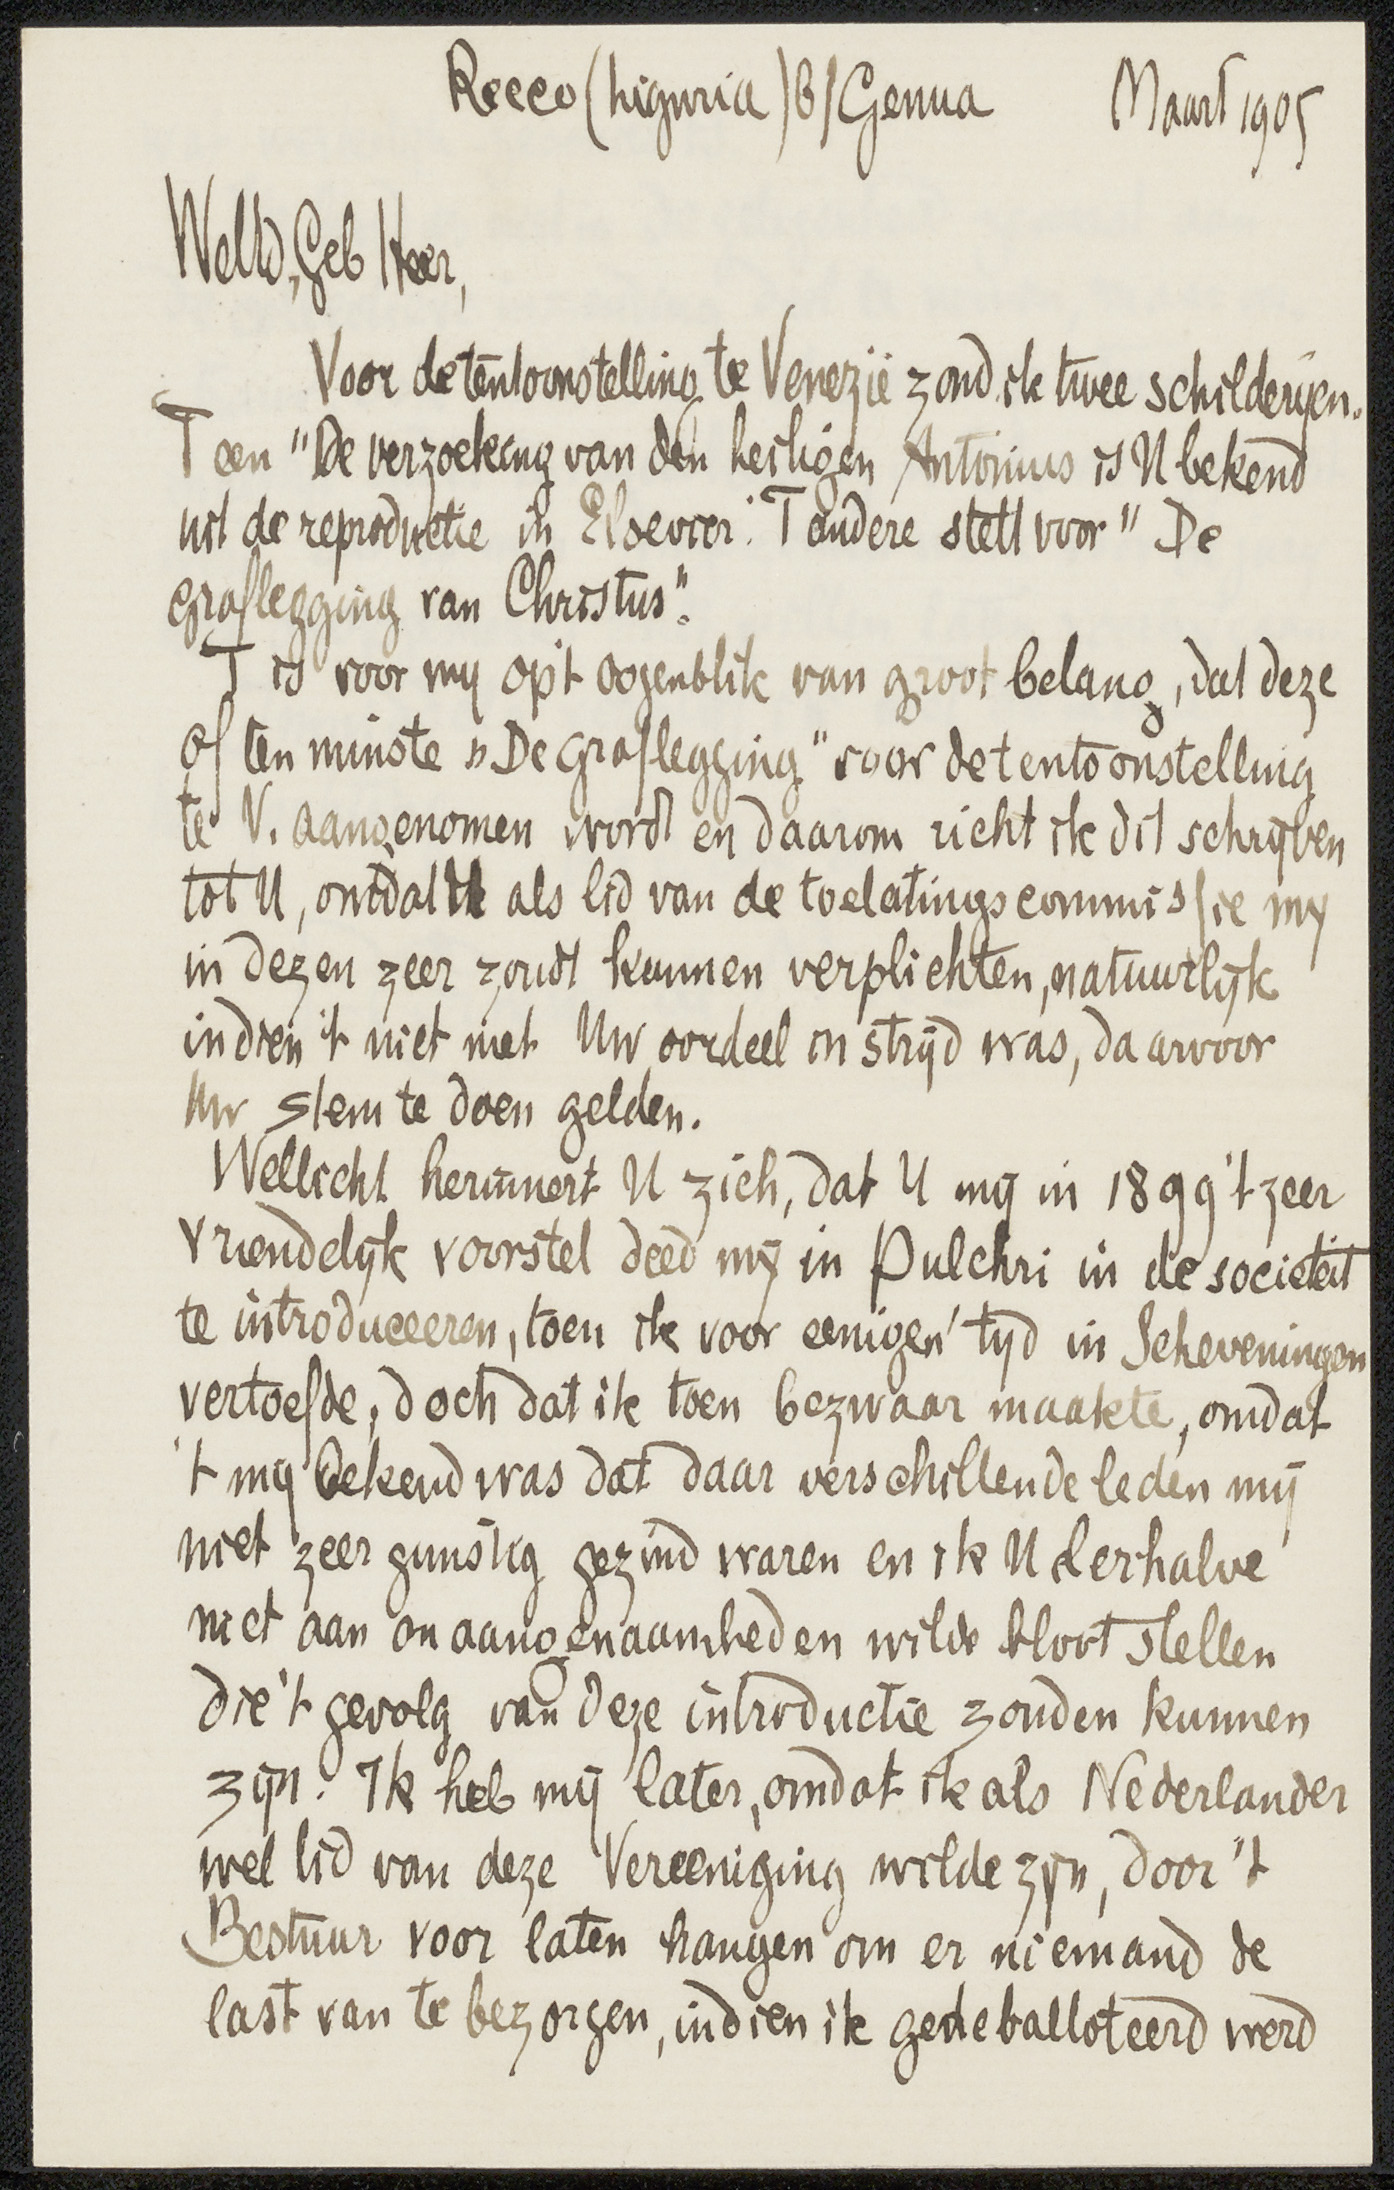 Recco (Liguria) B/Genua Maart 1905
WelEd, Geb Heer,
Voor de tentoonstelling te Venezië zond ik twee schilderijen.
T een "De verzoeking van den heiligen Antonius is U bekend
uit de reproductie in Elsevier. T andere stelt voor " De
graflegging van Christus".
T is voor mij op 't oogenblik van groot belang, dat deze
of ten minste "De graflegging" voor de tentoonstelling
te V. aangenomen wordt en daarom richt ik dit schrijven
tot U, omdat U als lid van de toelatingscommissie mij
in dezen zeer zoudt kunnen verplichten, natuurlijk
indien 't niet met Uw oordeel in strijd was, daarvoor
Uw stem te doen gelden.
Wellicht herinnert U zich, dat U mij in 1899 't zeer
vriendelijk voorstel deed mij in Pulchri in de societeit
te introduceeren, toen ik voor eenigen tijd in Scheveningen
vertoefde, doch dat ik toen bezwaar maakte, omdat
't mij bekend was dat daar verschillende leden mij
niet zeer gunstig gezind waren en ik U derhalve
niet aan onaangenaamheden wilde bloot stellen
die 't gevolg van deze introductie zouden kunnen
zijn. Ik heb mij later, omdat ik als Nederlander
wel lid van deze Vereeniging wilde zijn, door 't
Bestuur voor laten hangen om er niemand de
last van te bezorgen, indien ik gedeballoteerd werd